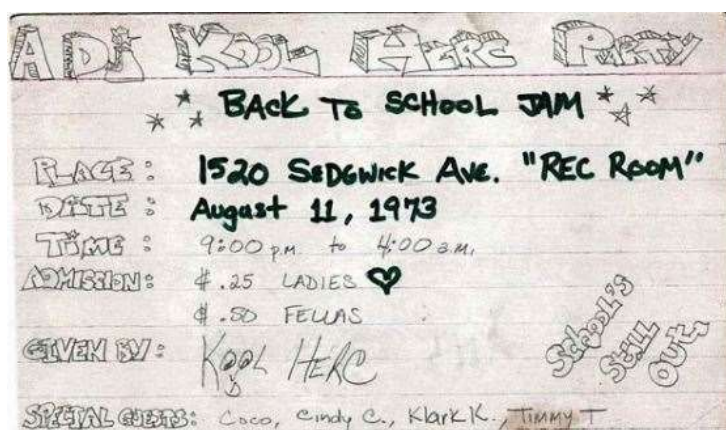 A DJ KOOL HERC PARTY
BACK TO SCHOOL JAM
PLACE: 1520 SEDGWICK AVE. "REC ROOM"
DATE: August 11, 1973
TIME: 9:00 pm to 4:00 a.m.
ADMISSION: $.25 LADIES ♥
$.50 FELLAS
GIVEN BY: KOOL HERC
SCHOOL'S
STILL
OUT.
SPECIAL GUESTS: Coco, Cindy C., Klark K., TIMMY T